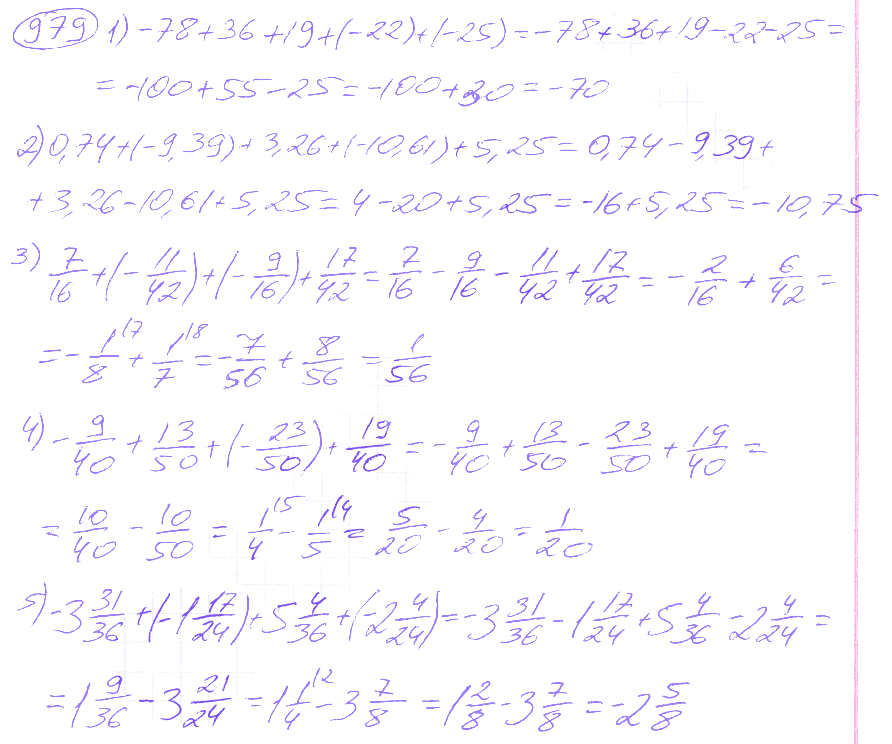 979 1) -78+36+19+(-22)+(-25)=-78+36+19-22-25=
=-100+55-25=-100+30=-70
2) 0,74+(-9,39)+3,26+(-10,61)+5,25=0,74-9,39+
+3,26-10,61+5,25=4-20+5,25=-16+5,25=-10,75
3) 7/16+(-11/42)+(-9/16)+17/42=7/16-9/16-11/42+17/42=-2/16+6/42=
=-1/8^(7+1/7^(8=-7/56+8/56=1/56
4) -9/40+13/50+(-23/50)+19/40=-9/40+13/50-23/50+19/40=
=10/40-10/50=1/4^(5-1/5^(4=5/20-4/20=1/20
5) -3 31/36+(-1 17/24)+5 4/36+(-2 4/24)=-3 31/36-1 17/24+5 4/36-2 4/24=
=1 9/36-3 21/24=1 1/4^(2-3 7/8=1 2/8-3 7/8=-2 5/8